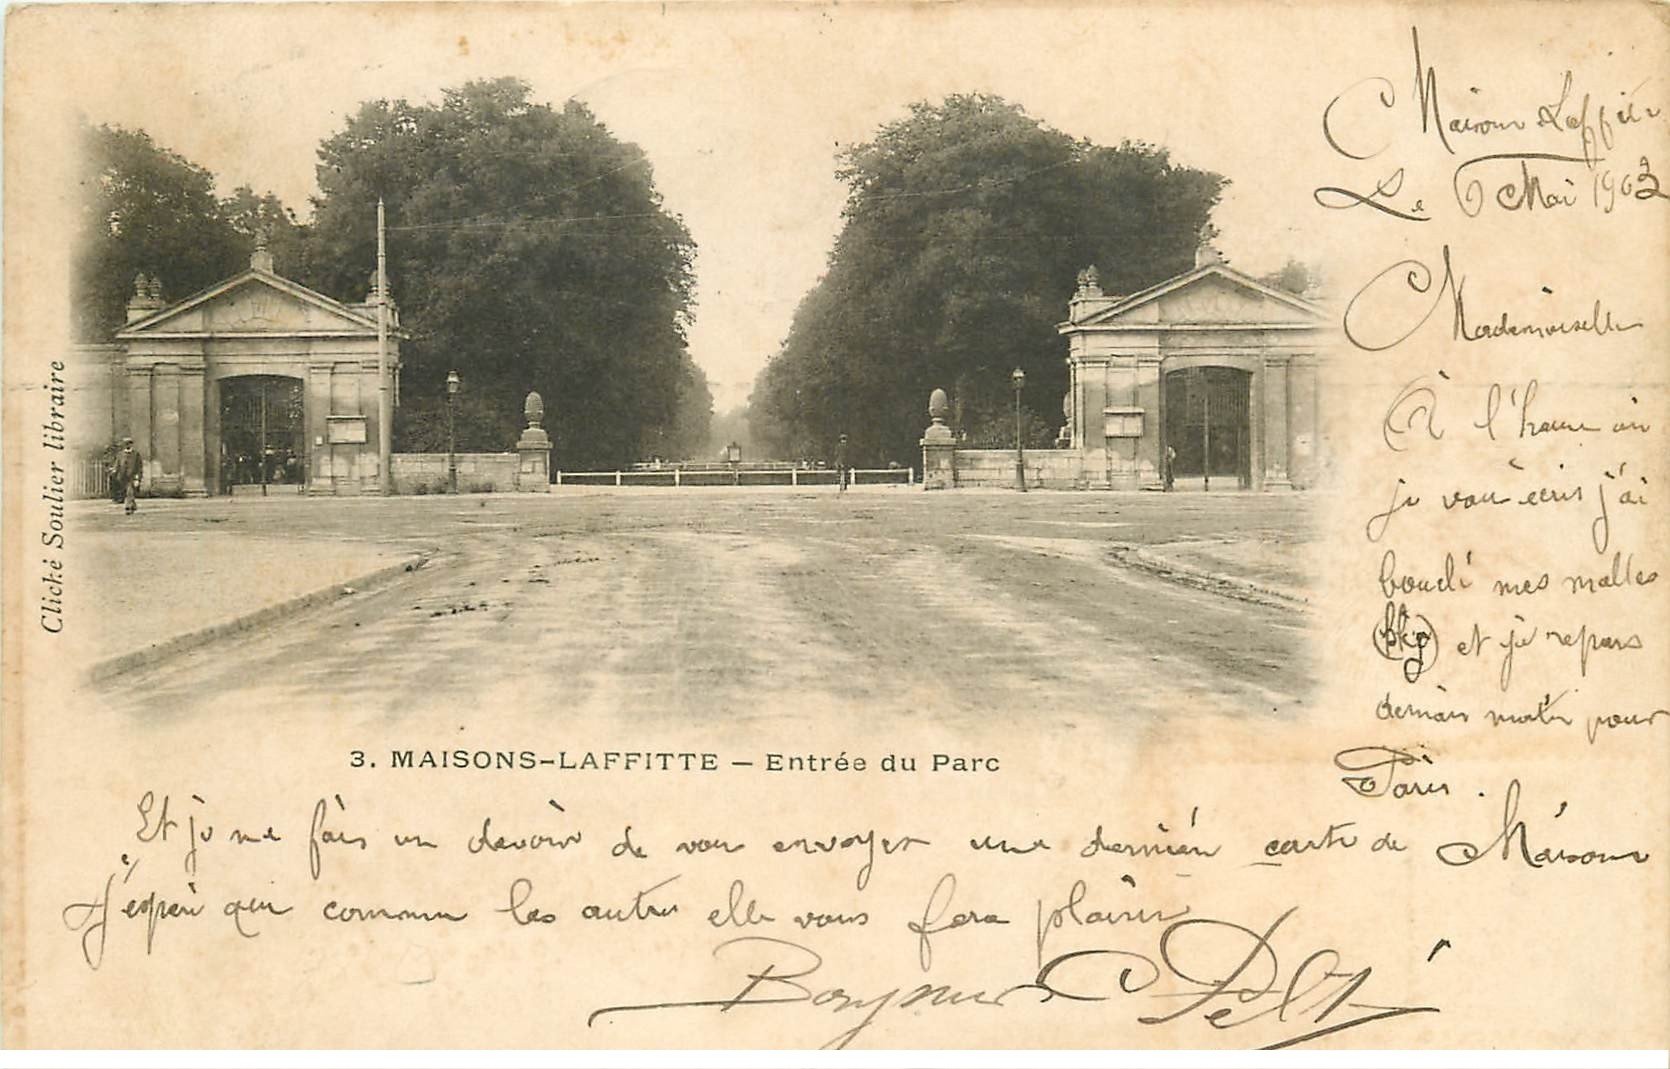 Maisons Laffitte
Le 6 Mai 1903
Mademoiselle
À l'heure où
je vous écris j'ai
bouclé mes malles
et je repars
demain matin pour
Paris.
Cliché Soulier libraire
3. MAISONS-LAFFITTE — Entrée du Parc
Et je me fais un devoir de vous envoyer une dernière carte de Maisons
J'espère que comme les autres elle vous fera plaisir
Bonjour